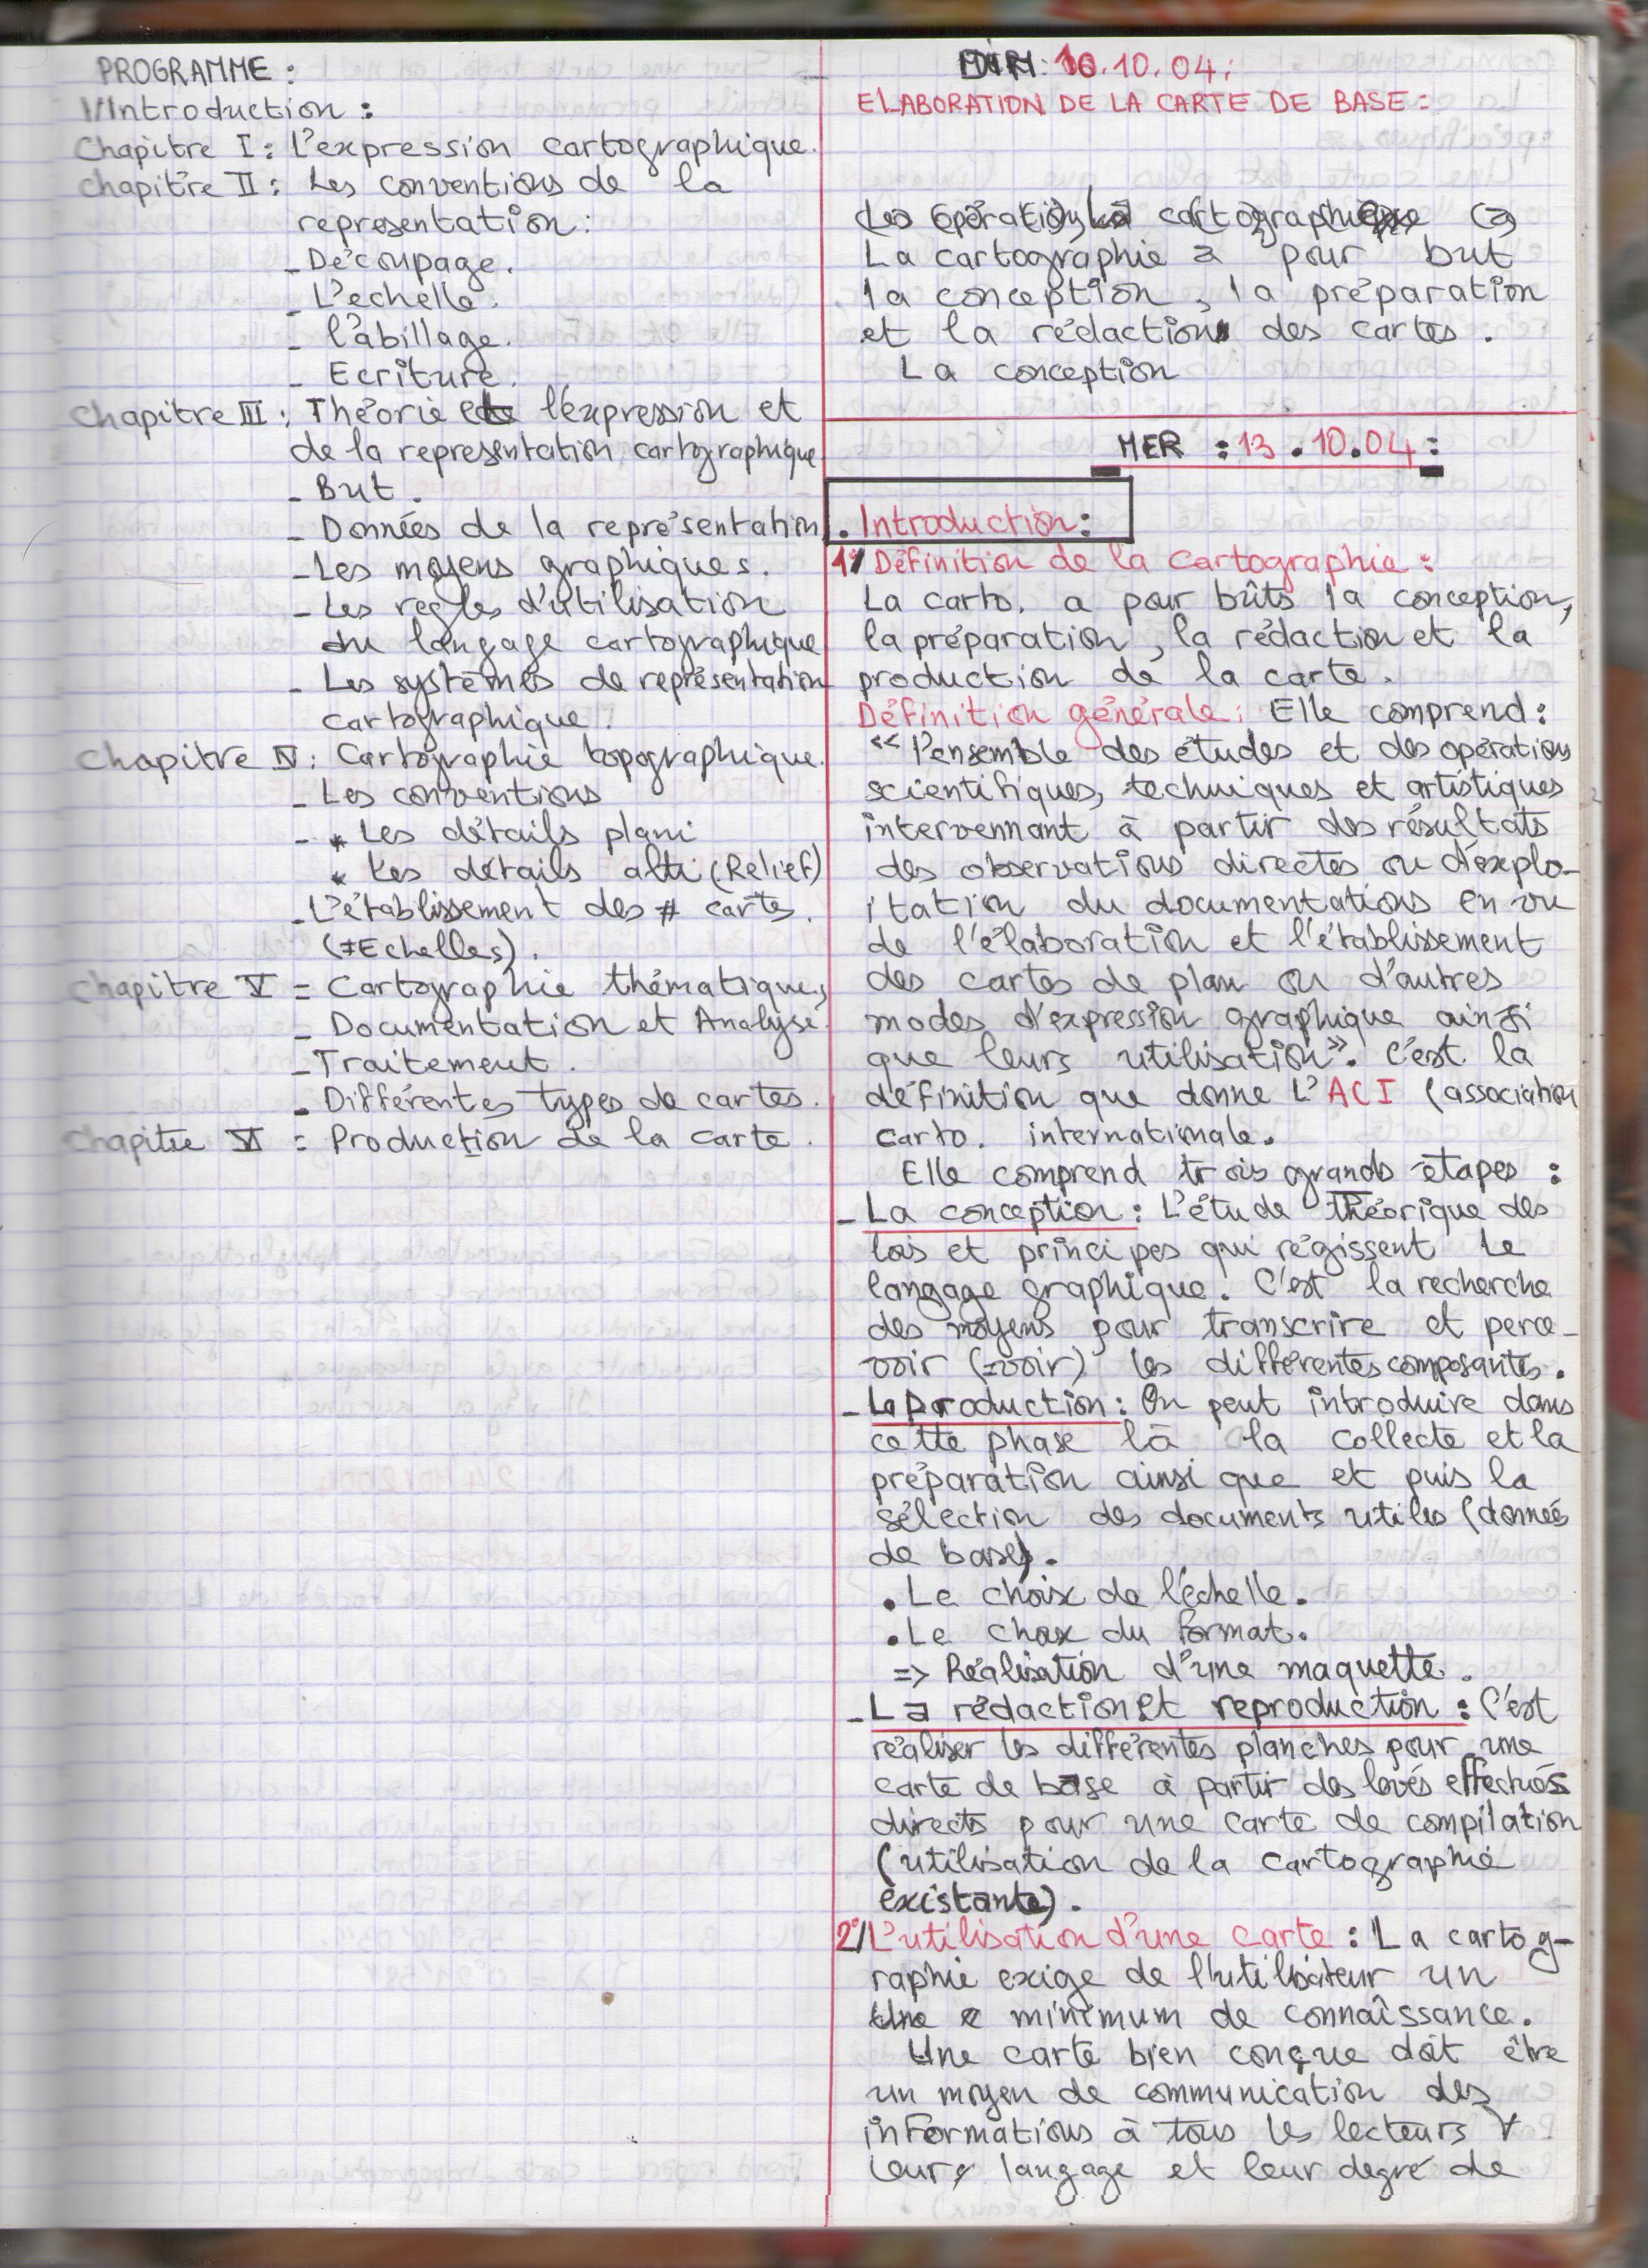 PROGRAMME :
I/Introduction :
Chapitre I : L'expression cartographique.
Chapitre II : Les conventions de la
representation :
- Découpage.
- L'echelle.
- l'abillage.
- Ecriture.
Chapitre III : Théorie de l'expression et
de la representation cartographique
- But.
- Données de la représentation
- Les moyens graphiques.
- Les regles d'utilisation
du langage cartographique
- Les systèmes de représentation
cartographique.
Chapitre IV : Cartographie topographique.
- Les conventions
- * Les détails plani
* Les détails alti (Relief)
- L'établissement des ≠ cartes.
(≠Echelles).
Chapitre V = Cartographie thématique,
- Documentation et Analyse.
- Traitement.
- Différentes types de cartes.
Chapitre VI = Production de la carte.
DIM : 10.10.04 :
ELABORATION DE LA CARTE DE BASE :
La cartographie a pour but
la conception, la préparation
et la rédaction des cartes.
La conception
MER : 13.10.04 :
. Introduction :
1°/ Définition de la cartographie :
La carto. a pour bûts la conception,
la préparation, la rédaction et la
production de la carte.
Définition générale : Elle comprend :
<< l'ensemble des études et des opérations
scientifiques, techniques et artistiques
intervennant à partir des résultats
des observations directes ou d'explo-
itation du documentations en vu
de l'élaboration et l'établissement
des cartes de plan ou d'autres
modes d'expression graphique ainsi
que leurs utilisation >>. C'est la
définition que donne L'ACI (association
carto. internationale.
Elle comprend trois grands étapes :
- La conception : L'étude théorique des
lois et principes qui régissent le
langage graphique. C'est la recherche
des moyens pour transcrire et perce-
voir (=voir) les différentes composantes.
- La production : On peut introduire dans
cette phase là la collecte et la
préparation ainsi que et puis la
sélection des documents utiles (données
de base).
. Le choix de l'échelle.
. Le choix du format.
=> Réalisation d'une maquette.
- La rédaction et reproduction : C'est
réaliser les différentes planches pour une
carte de base à partir des levés effectués
directs pour une carte de compilation
(utilisation de la cartographie
existante).
2°/ L'utilisation d'une carte : La cartog-
raphie exige de l'utilisateur un
minimum de connaîssance.
Une carte bien conçue doit être
un moyen de communication des
informations à tous les lecteurs ∀
leur langage et leur degré de